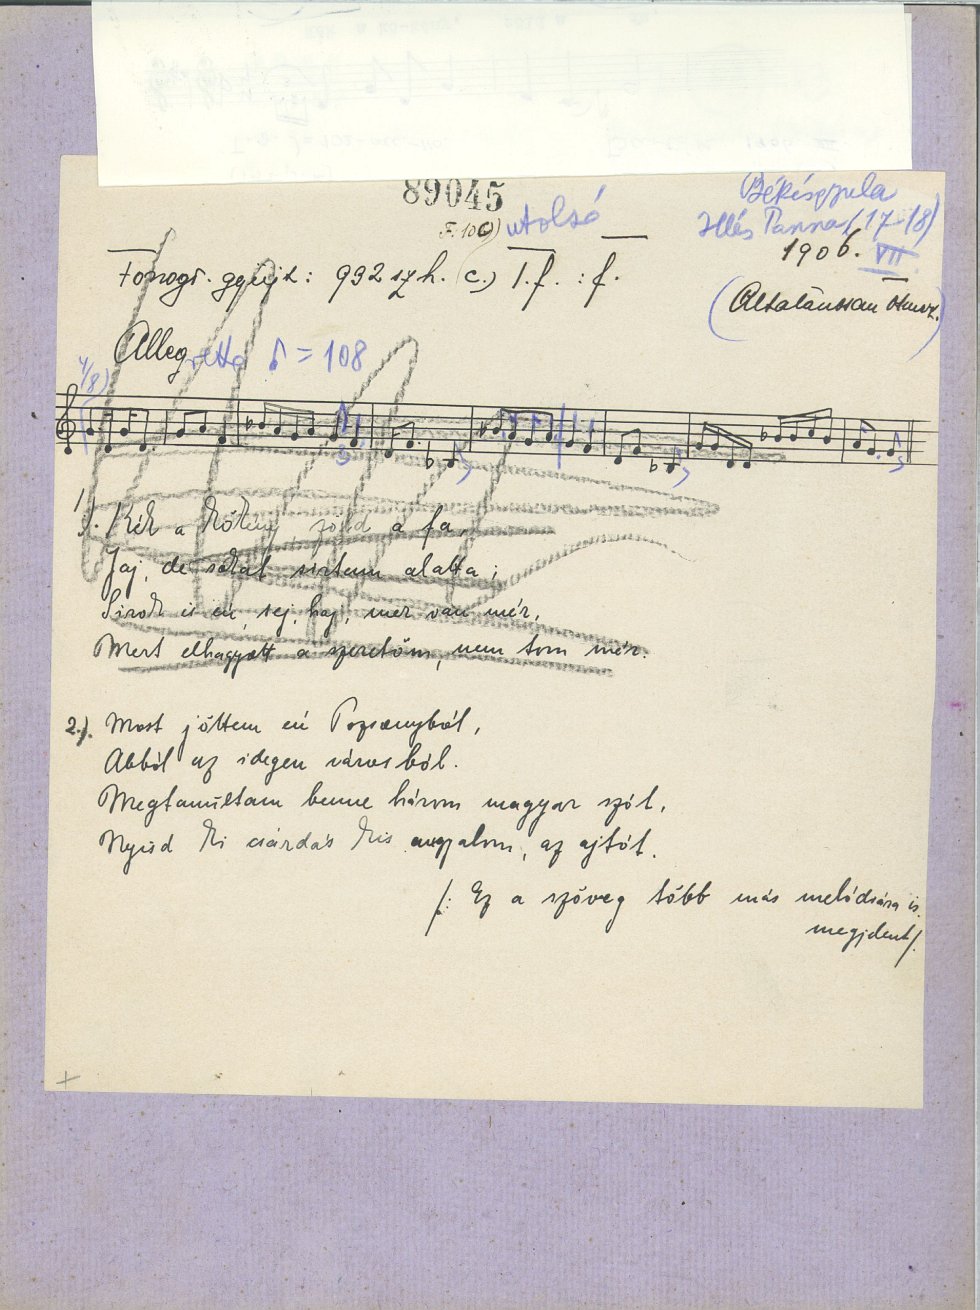 89045
F. 100) utolsó
Békésgyula
Illés Panna (17-18)
1906. VII
Fonogr. gyűjt: 992 sz h. (c.) I. f. : f.
(Általánosan ösmr.)
Allegretto ♪ = 108
4/8)
1.) Kék a kökény, zöld a fa,
Jaj, de sokat sirtam alatta;
Sirok is én, sej, haj, mer van mér,
Mert elhagyott a szeretőm, nem tom mér.
2.) Most jöttem én Pozsonyból,
Abból az idegen városból.
Megtanultam benne három magyar szót,
Nyisd ki csárdás kis angyalom, az ajtót.
/: Ez a szöveg több más melódiára is
megjelent/.